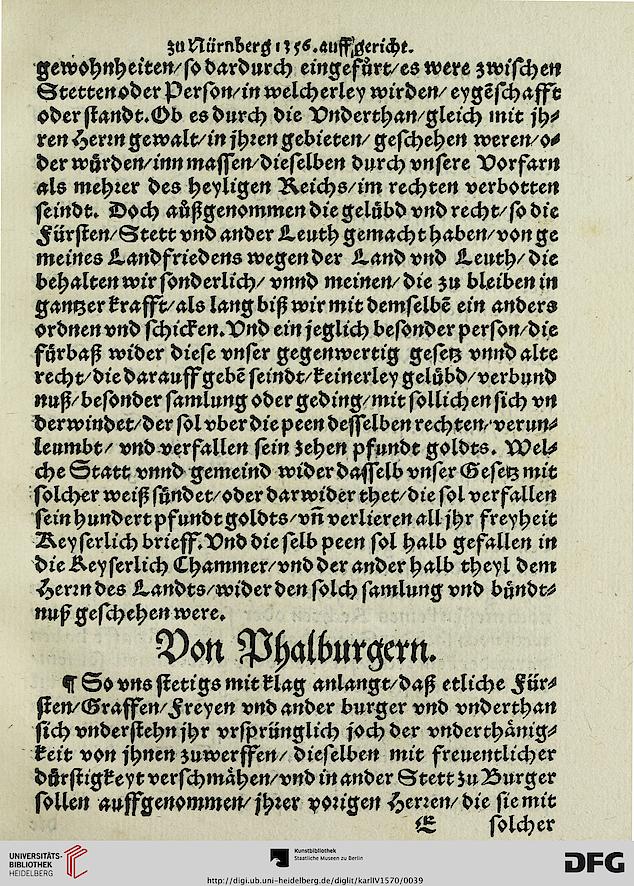 zu Nürnberg 1356. auff gericht.
gewohnheiten/ so dardurch eingefůrt/ es were zwischen
Stetten oder Person/ in welcherley wirden/ eygẽschafft
oder standt. Ob es durch die Vnderthan/ gleich mit jh⸗
ren Herrn gewalt/ in jhren gebieten/ geschehen weren/ o⸗
der wůrden/ inn massen/ dieselben durch vnsere Vorfarn
als mehrer des heyligen Reichs/ im rechten verbotten
seindt. Doch aůßgenommen die gelůbd vnd recht/ so die
Fůrsten/ Stett vnd ander Leuth gemacht haben/ von ge
meines Landfriedens wegen der Land vnd Leuth/ die
behalten wir sonderlich/ vnnd meinen/ die zu bleiben in
gantzer krafft/ als lang biß wir mit demselbẽ ein anders
ordnen vnd schicken. Vnd ein jeglich besonder person/ die
fůrbaß wider diese vnser gegenwertig gesetz vnnd alte
recht/ die darauff gebẽ seindt/ keinerley gelůbd/ verbund
nuß/ besonder samlung oder geding/ mit sollichen sich vn
derwindet/ der sol vber die peen desselben rechten/ verun⸗
leumbt/ vnd verfallen sein zehen pfundt goldts. Wel⸗
che Statt vnnd gemeind wider dasselb vnser Gesetz mit
solcher weiß sůndet/ oder darwider thet/ die sol verfallen
sein hundert pfundt goldts/ vñ verlieren all jhr freyheit
Keyserlich brieff. Vnd die selb peen sol halb gefallen in
die Keyserlich Chammer/ vnd der ander halb theyl dem
Herrn des Landts/ wider den solch samlung vnd bůndt⸗
nuß geschehen were.
Von Phalburgern.
¶ So vns stetigs mit klag anlangt/ daß etliche Fůr⸗
sten/ Graffen/ Freyen vnd ander burger vnd vnderthan
sich vnderstehn jhr vrsprünglich joch der vnderthänig⸗
keit von jhnen zuwerffen/ dieselben mit freuentlicher
důrstigkeyt verschmähen/ vnd in ander Stett zu Burger
sollen auffgenommen/ jhrer vorigen Herren/ die sie mit
E solcher
UNIVERSITÄTS-
BIBLIOTHEK
HEIDELBERG
Kunstbibliothek
Staatliche Museen zu Berlin
http://digi.ub.uni-heidelberg.de/diglit/karlIV1570/0039
DFG